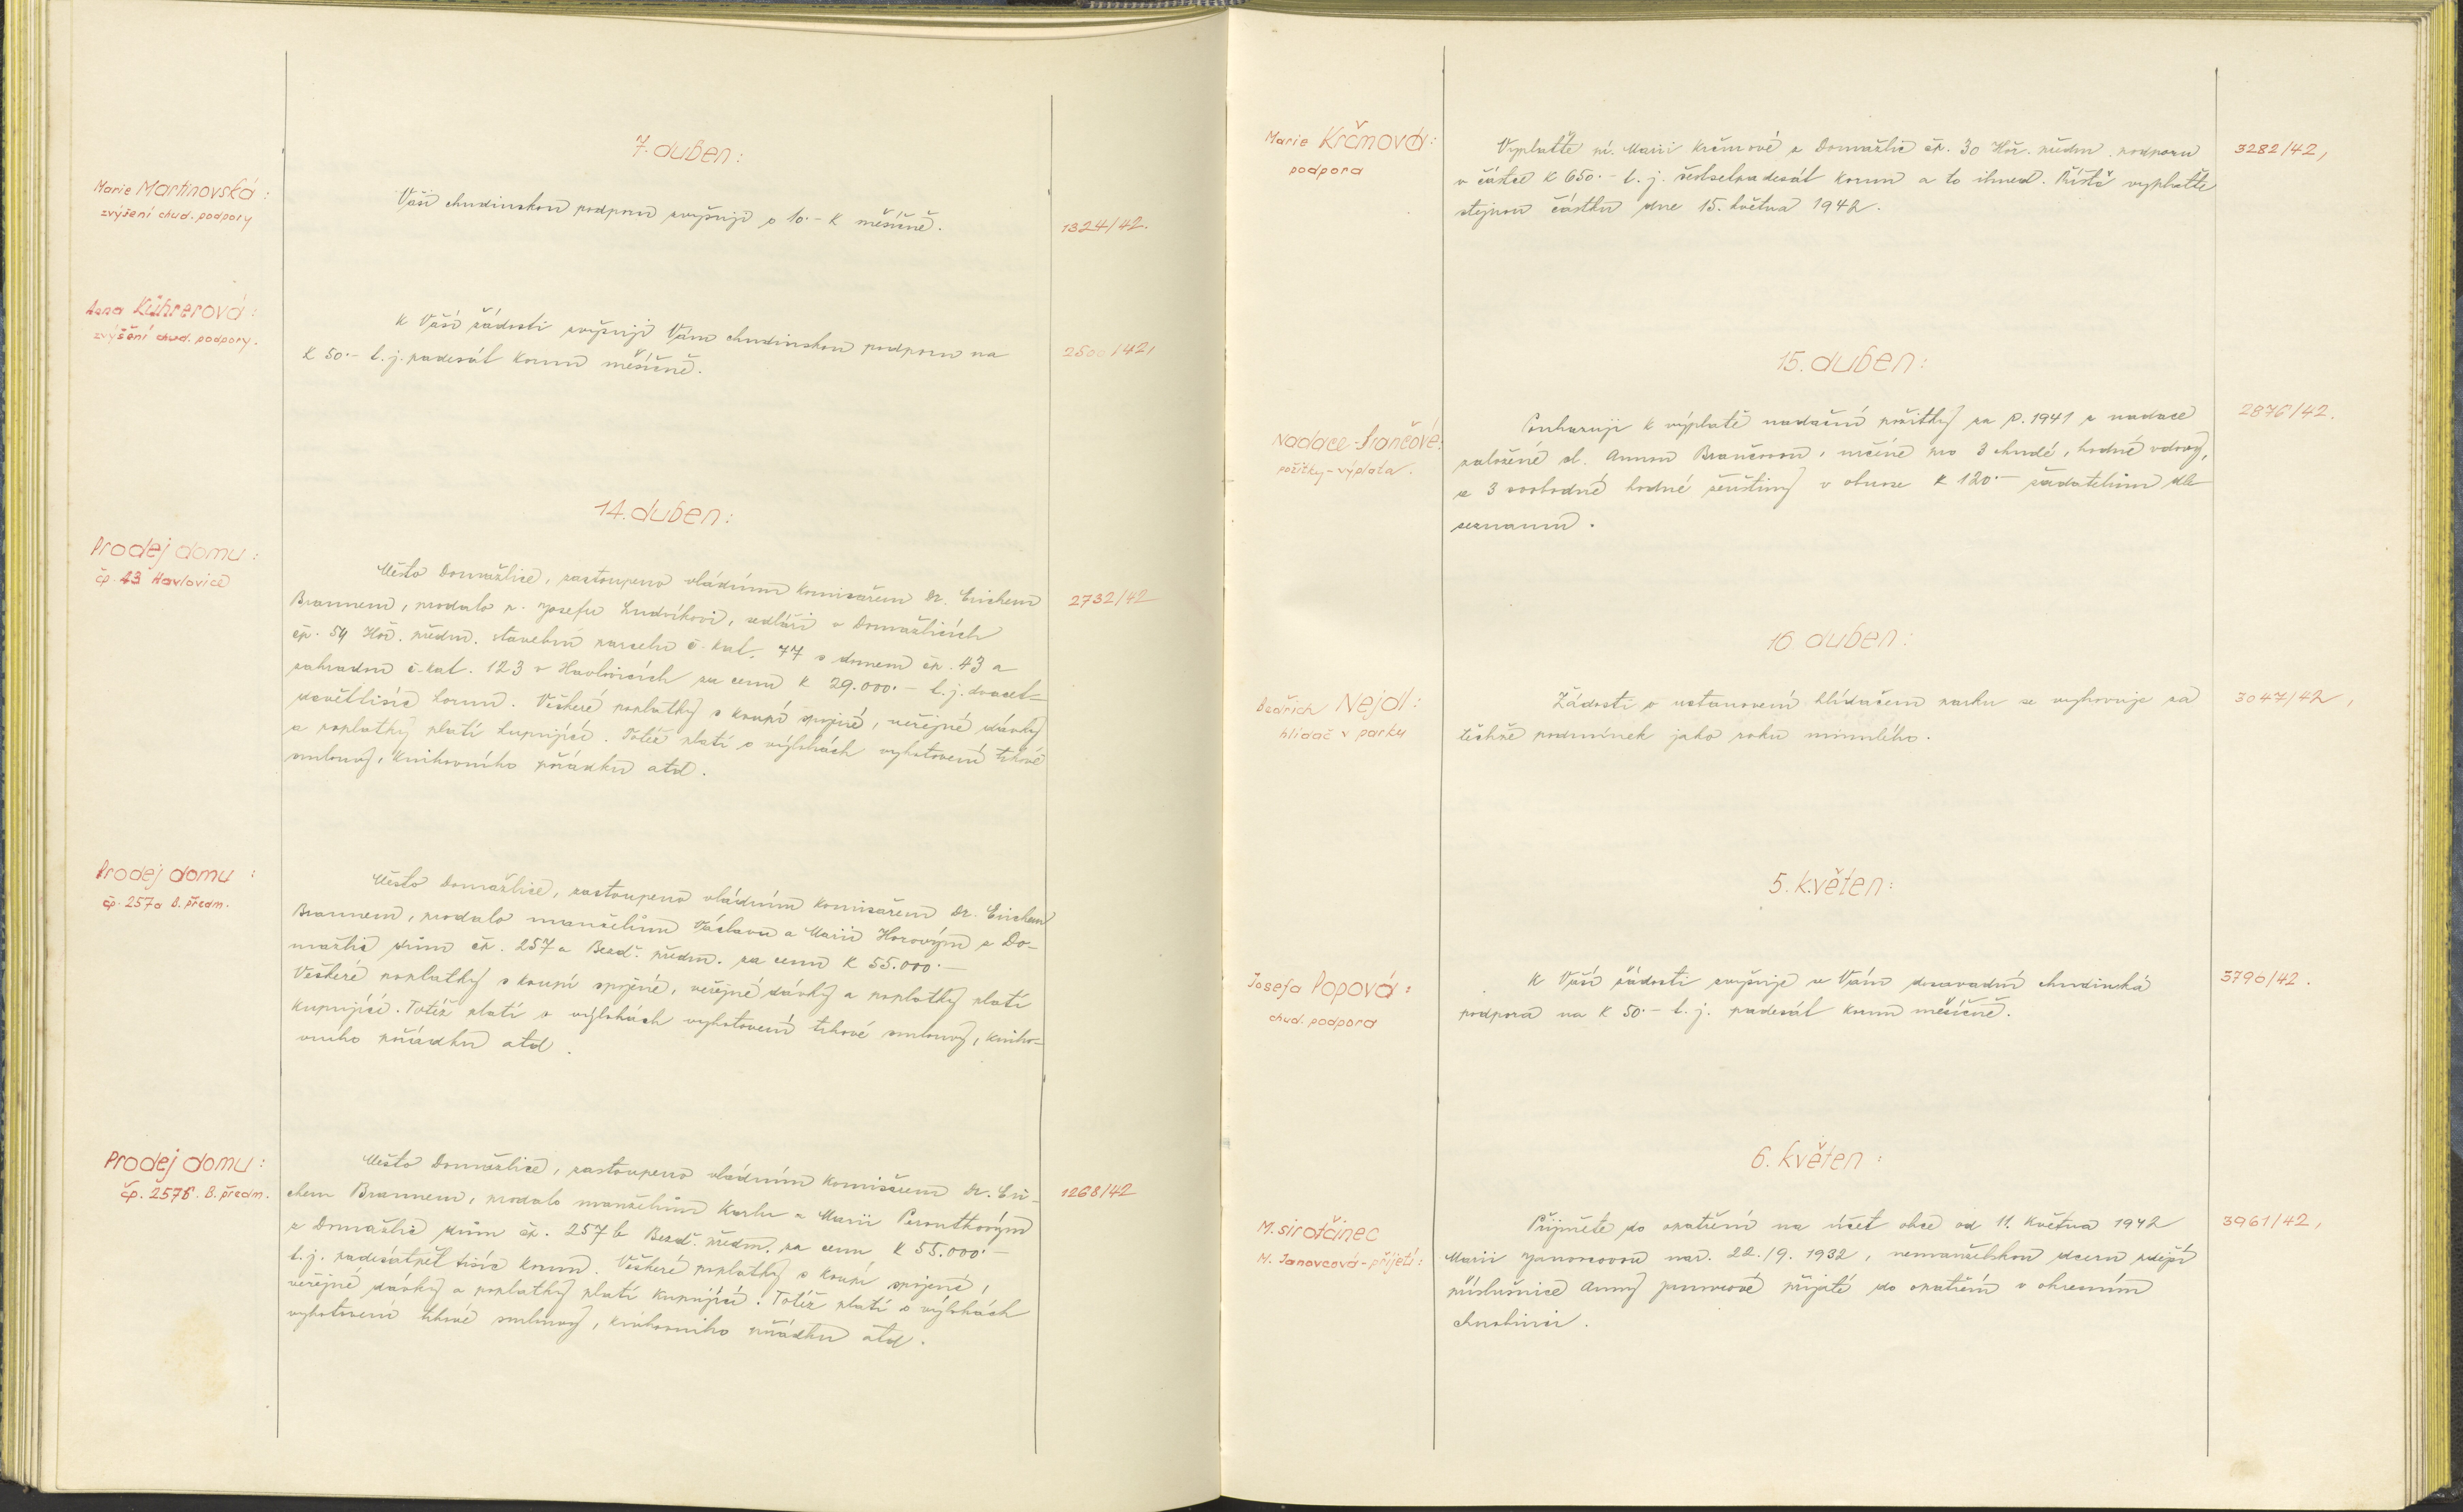 7. duben:
Marie Martinovská:
zvýšení chud. podpory
Vaši chudinskou podporu zvyšuji o 10.- K měsíčně.
1324/42.
Anna Kührerová:
zvýšení chud. podpory.
K Vaší žádosti zvyšuji Vám chudinskou podporu na
K 50.- t. j. padesát korun měsíčně.
2500/42,
14. duben:
Prodej domu:
čp. 43 Havlovice
Město Domažlice, zastoupeno vládním komisařem Dr. Erichem
Braunem, prodalo p. Josefu Ludvíkovi, sedláři v Domažlicích
čp. 54 Hoř. předm. stavební parcelu č. kat. 77 s domem čp. 43 a
zahradou č. kat. 123 v Havlovicích za cenu K 29.000.- t. j. dvacet-
devěttisíc korun. Veškeré poplatky s koupí spojené, veřejné dávky
a poplatky platí kupující. Totéž platí o výlohách vyhotovení trhové
smlouvy, knihovního pořádku atd.
2732/42
Prodej domu:
čp. 257a B. předm.
Město Domažlice, zastoupeno vládním komisařem Dr. Erichem
Braunem, prodalo manželům Václavu a Marii Horovým z Do-
mažlic dům čp. 257a Bezd. předm. za cenu K 55.000.-
Veškeré poplatky s koupí spojené, veřejné dávky a poplatky platí
kupující. Totéž platí o výlohách vyhotovení trhové smlouvy, kniho-
vního pořádku atd.
Prodej domu:
čp. 257b. B. předm.
Město Domažlice, zastoupeno vládním komisařem Dr. Eri-
chem Braunem, prodalo manželům Karlu a Marii Peroutkovým
z Domažlic dům čp. 257b Bezd. předm. za cenu K 55.000.-
t. j. padesátpět tisíc korun. Veškeré poplatky s koupí spojené,
veřejné dávky a poplatky platí kupující. Totéž platí o výlohách
vyhotovení trhové smlouvy, knihovního pořádku atd.
1268/42
Marie Krčmová:
podpora
Vyplaťte pí. Marii Krčmové z Domažlic čp. 30 Hoř. předm. podporu
v částce K 650.- t. j. šestsetpadesát korun a to ihned. Příště vyplaťte
stejnou částku dne 15. května 1942.
3282/42,
15. duben:
Nadace Brančové:
požitky - výplata.
Poukazuji k výplatě nadační požitky za r. 1941 z nadace
založené sl. Annou Brančovou, určené pro 3 chudé, hodné vdovy,
a 3 svobodné hodné v obnose K 120.- žadatelům dle
seznamu.
2876/42.
16. duben:
Bedřich Nejdl:
hlídač v parku
Žádosti o ustanovení hlídačem parku se vyhovuje za
těchže podmínek jako roku minulého.
3047/42,
5. květen:
Josefa Popová:
chud. podpora
K Vaší žádosti zvyšuje se Vám dosavadní chudinská
podpora na K 50.- t. j. padesát korun měsíčně.
3790/42.
6. květen:
M. sirotčinec
M. Janovcová - přijetí:
Přijměte do opatření na účet obce od 11. května 1942
Marii Janovcovou nar. 22./9. 1932, nemanželskou dceru zdejší
příslušnice Anny Janovcové přijaté do opatření v okresním
chudinci.
3961/42,